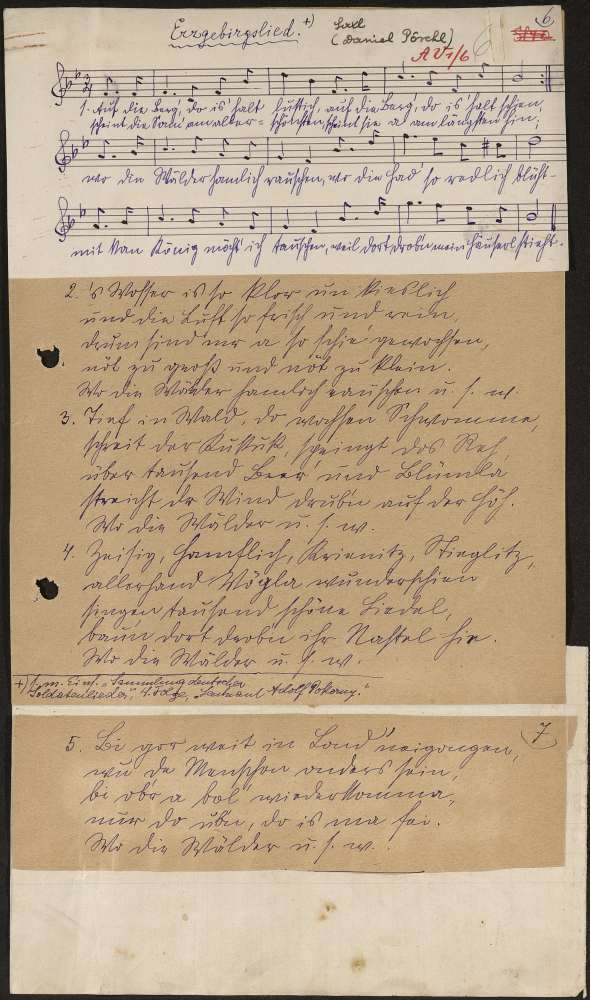 Erzgebirgslied. +)
Saxl
(Daniel Pöschl)
6
A V 1/6
1. Auf die Berg, do is' halt lustich, auf die Berg, do is' halt schien,
scheint die Sonn am aller= schönsten, scheint sie a am längsten hin;
wo die Wälder hamlich rauschen, wo die Had' so rödlich blüht -
mit kan König möcht' ich tauschen, weil dort drobn mei Häuserl stieht.
2. 's Wosser is so klor un kieslich
und die Luft so frisch und rein,
drum sind mr a so schie' gewochsen,
nöt zu groß und nöt zu klein.
Wo die Wälder hamlich rauschen u. s. w.
3. Tief in Wald, do wachsen Schwomme,
schreit der Kukuk, springt dos Reh,
über tausend Beer' und Blümla
streicht dr Wind drubn auf der Höh.
Wo die Wälder u. s. w.
4. Zeisig, Hamflich, Krienitz, Stieglitz,
allerhand Vögla wunderschien
singen tausend schöne Liedel,
baun dort drobn ihr Nastel hie.
Wo die Wälder u. s. w.
+) s. m. Eins. "Sammlung deutscher
Soldatenlieder", 4. Folge, Adolf Pokorny."
7
5. Bi gor weit in Land neigongen,
wu de Menschen onders sein,
bi obr a bol wiederkomma,
nur do ubn, do is ma fei.
Wo die Wälder u. s. w.